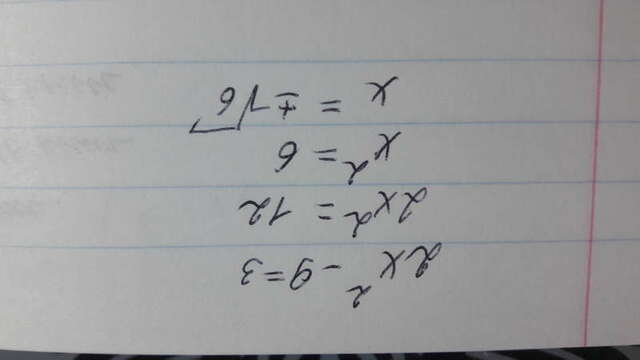 2x² - 9 = 3
2x² = 12
x² = 6
x = ±√6